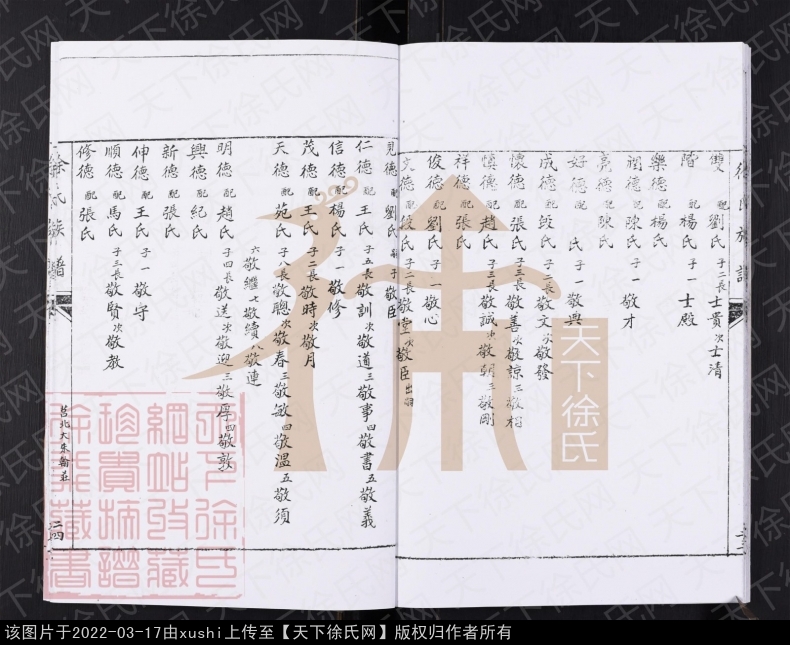 徐氏族譜
雙 配劉氏 子二長士貴次士清
階 配楊氏 子一士殿
樂德 配楊氏
潤德 配陳氏 子一敬才
亮德 配陳氏
好德 配 氏 子一敬興
成德 配段氏 子二長敬文次敬發
懷德 配張氏 子三長敬善次敬諒三敬相
慎德 配趙氏 子三長敬誠次敬朝三敬剛
祥德 配張氏
俊德 配劉氏 子一敬心
文德 配段氏 子二長敬堂次敬臣出嗣
見德 配劉氏 嗣子敬臣
仁德 配王氏 子五長敬訓次敬道三敬事四敬書五敬義
信德 配楊氏 子一敬修
茂德 配王氏 子二長敬時次敬月
天德 配苑氏 子八長敬聰次敬春三敬敏四敬溫五敬須
六敬繼七敬續八敬連
明德 配趙氏 子四長敬送次敬迎三敬厚四敬敦
興德 配紀氏
新德 配張氏
伸德 配王氏 子一敬守
順德 配馬氏 子三長敬賢次敬教
修德 配張氏
徐氏族譜
莒北大朱翰莊
二四
天下徐氏
天下徐氏网
该图片于2022-03-17由xushi上传至【天下徐氏网】版权归作者所有